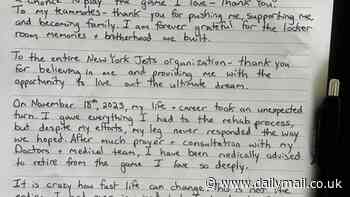 chance to play the game I love - Thank you!
To my teammates - thank you for pushing me, supporting me,
and becoming family. I am forever grateful for the locker
room memories + brotherhood we built.
To the entire New York Jets organization - thank you
for believing in me and providing me with the
opportunity to live out the ultimate dream.
On November 18th, 2023, my life + career took an unexpected
turn. I gave everything I had to the rehab process,
but despite my efforts, my leg never responded the way
we hoped. After much prayer + consultation with my
Doctors + medical team, I have been medically advised
to retire from the game I love so deeply.
It is crazy how fast life can change. This is not the
www.dailymail.co.uk